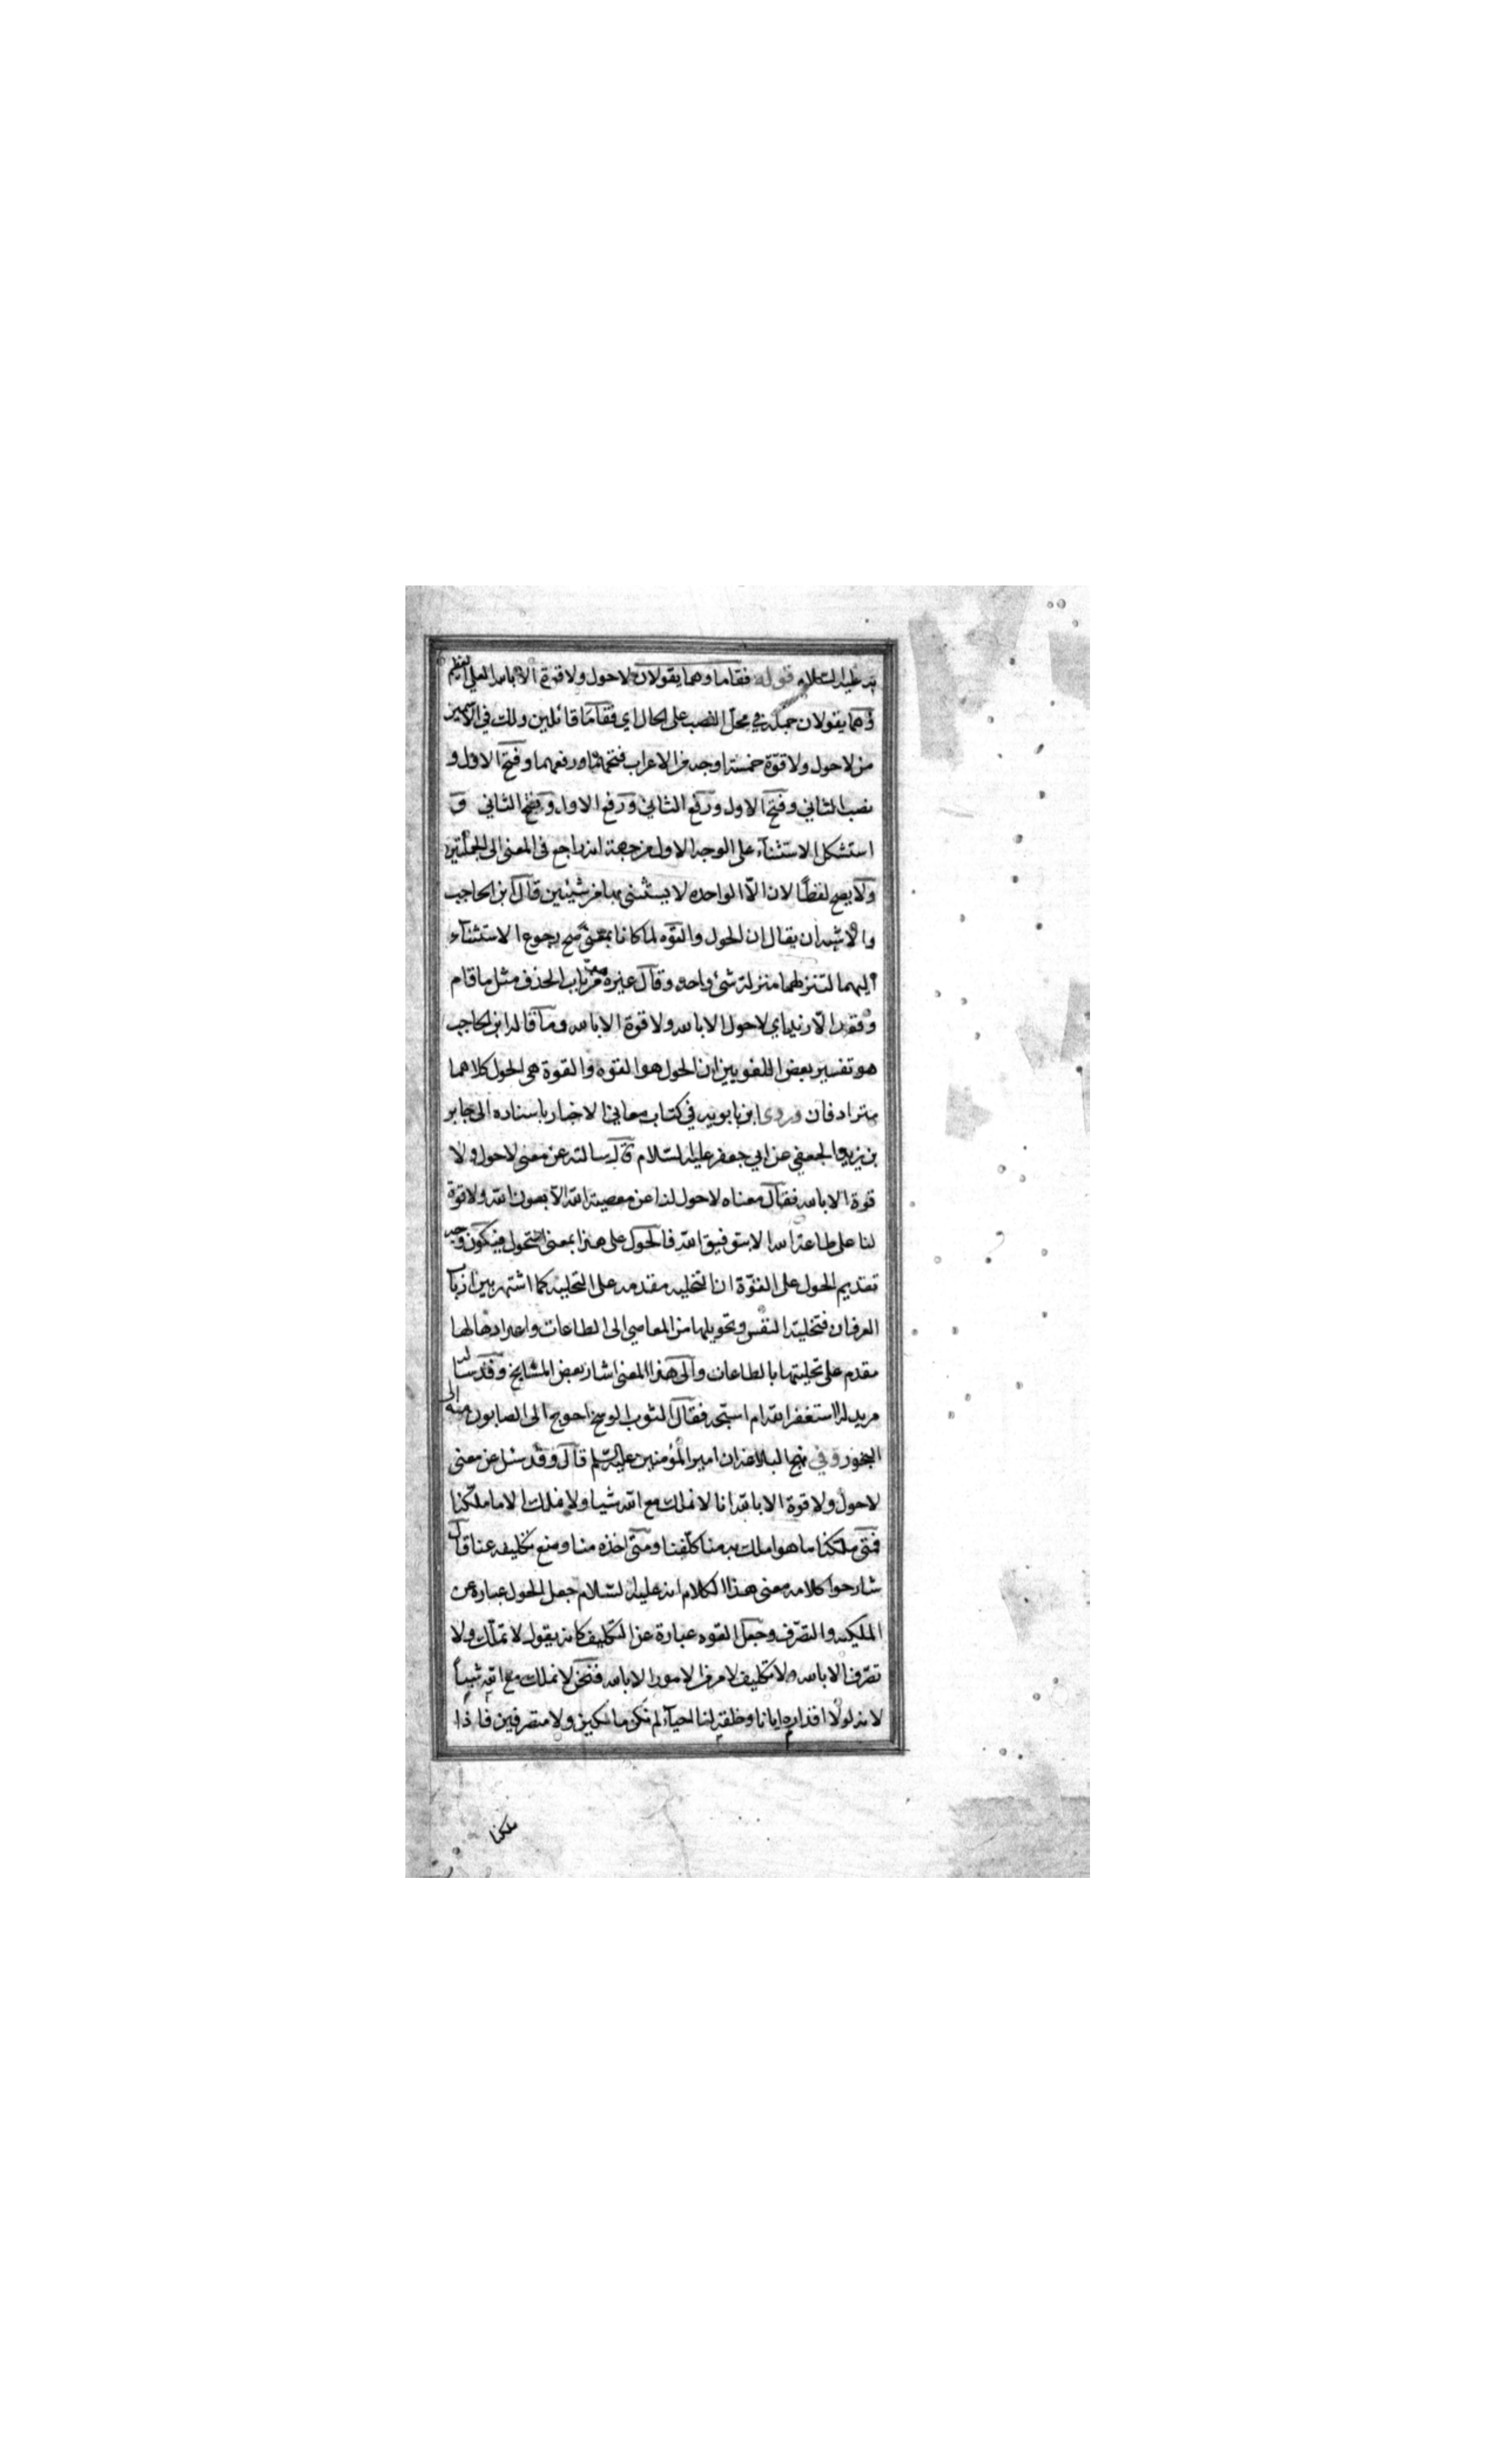 به عليه السلام قوله فقاما وهما يقولان لا حول ولا قوة الا بالله العلي العظيم
وهما يقولان جملة في محل النصب على الحال اي فقاما قائلين ولك في الاسمين
من لا حول ولا قوّة خمسة اوجه من الاعراب فتحهما ورفعهما وفتح الاول و
نصب الثاني وفتح الاول ورفع الثاني ورفع الاول وفتح الثاني و
استشكل الاستثناء على الوجه الاول من جهة انه راجع في المعنى الى الجملتين
ولا يصح لفظاً لان الّا الواحده لا يستثنى بها من شيئين قال ابن الحاجب
والاشبه ان يقال ان الحول والقوّه لما كانا بمعنى صح رجوع الاستثناء
اليهما لتنزلهما منزلة شئ واحد وقال غيره هو من باب الحذف مثل ما قام
وقعد الّا زيد اي لا حول الا بالله ولا قوة الا بالله وما قاله ابن الحاجب
هو تفسير بعض اللغويين ان الحول هو القوه والقوة هي الحول كلاهما
مترادفان وروى ابن بابويه في كتاب معاني الاخبار باسناده الى جابر
بن يزيد الجعفي عن ابي جعفر عليه السلام قال سالته عن معنى لا حول ولا
قوة الا بالله فقال معناه لا حول لنا عن معصية الله الا بعون الله ولا قوة
لنا على طاعة الله الا بتوفيق الله فالحول على هذا بمعنى التحول فيكون وجه
تقديم الحول على القوّة ان التخليه مقدمه على التحليه كما اشتهر بين ارباب
العرفان فتخلية النفس وتحويلها من المعاصي الى الطاعات واعدادها لها
مقدم على تحليتها بالطاعات والى هذا المعنى اشار بعض المشايخ وقد ساله
مريد له استغفر الله ام اسبّح فقال الثوب الوسخ احوج الى الصابون منه الى
البخور وفي نهج البلاغه ان امير المؤمنين عليه السلم قال وقد سئل عن معنى
لا حول ولا قوة الا بالله انا لا نملك مع الله شيا ولا نملك الا ما ملّكنا
فمتى ملكنا ما هو املك به منا كلّفنا ومتى اخذه منا وضع تكليفه عنا قال
شارحوا كلامه معنى هذا الكلام انه عليه السلام جعل الحول عبارة عن
الملكيه والتصرّف وجعل القوه عبارة عن التكليف كانه يقول لا تملّك ولا
تصرّف الا بالله ولا تكليف لامر من الامور الا بالله فنحن لا نملك مع الله شيئاً
لانه لولا اقداره ايانا وخلقته لنا احياء لم نكن مالكين ولا متصرفين فاذا
ملكنا